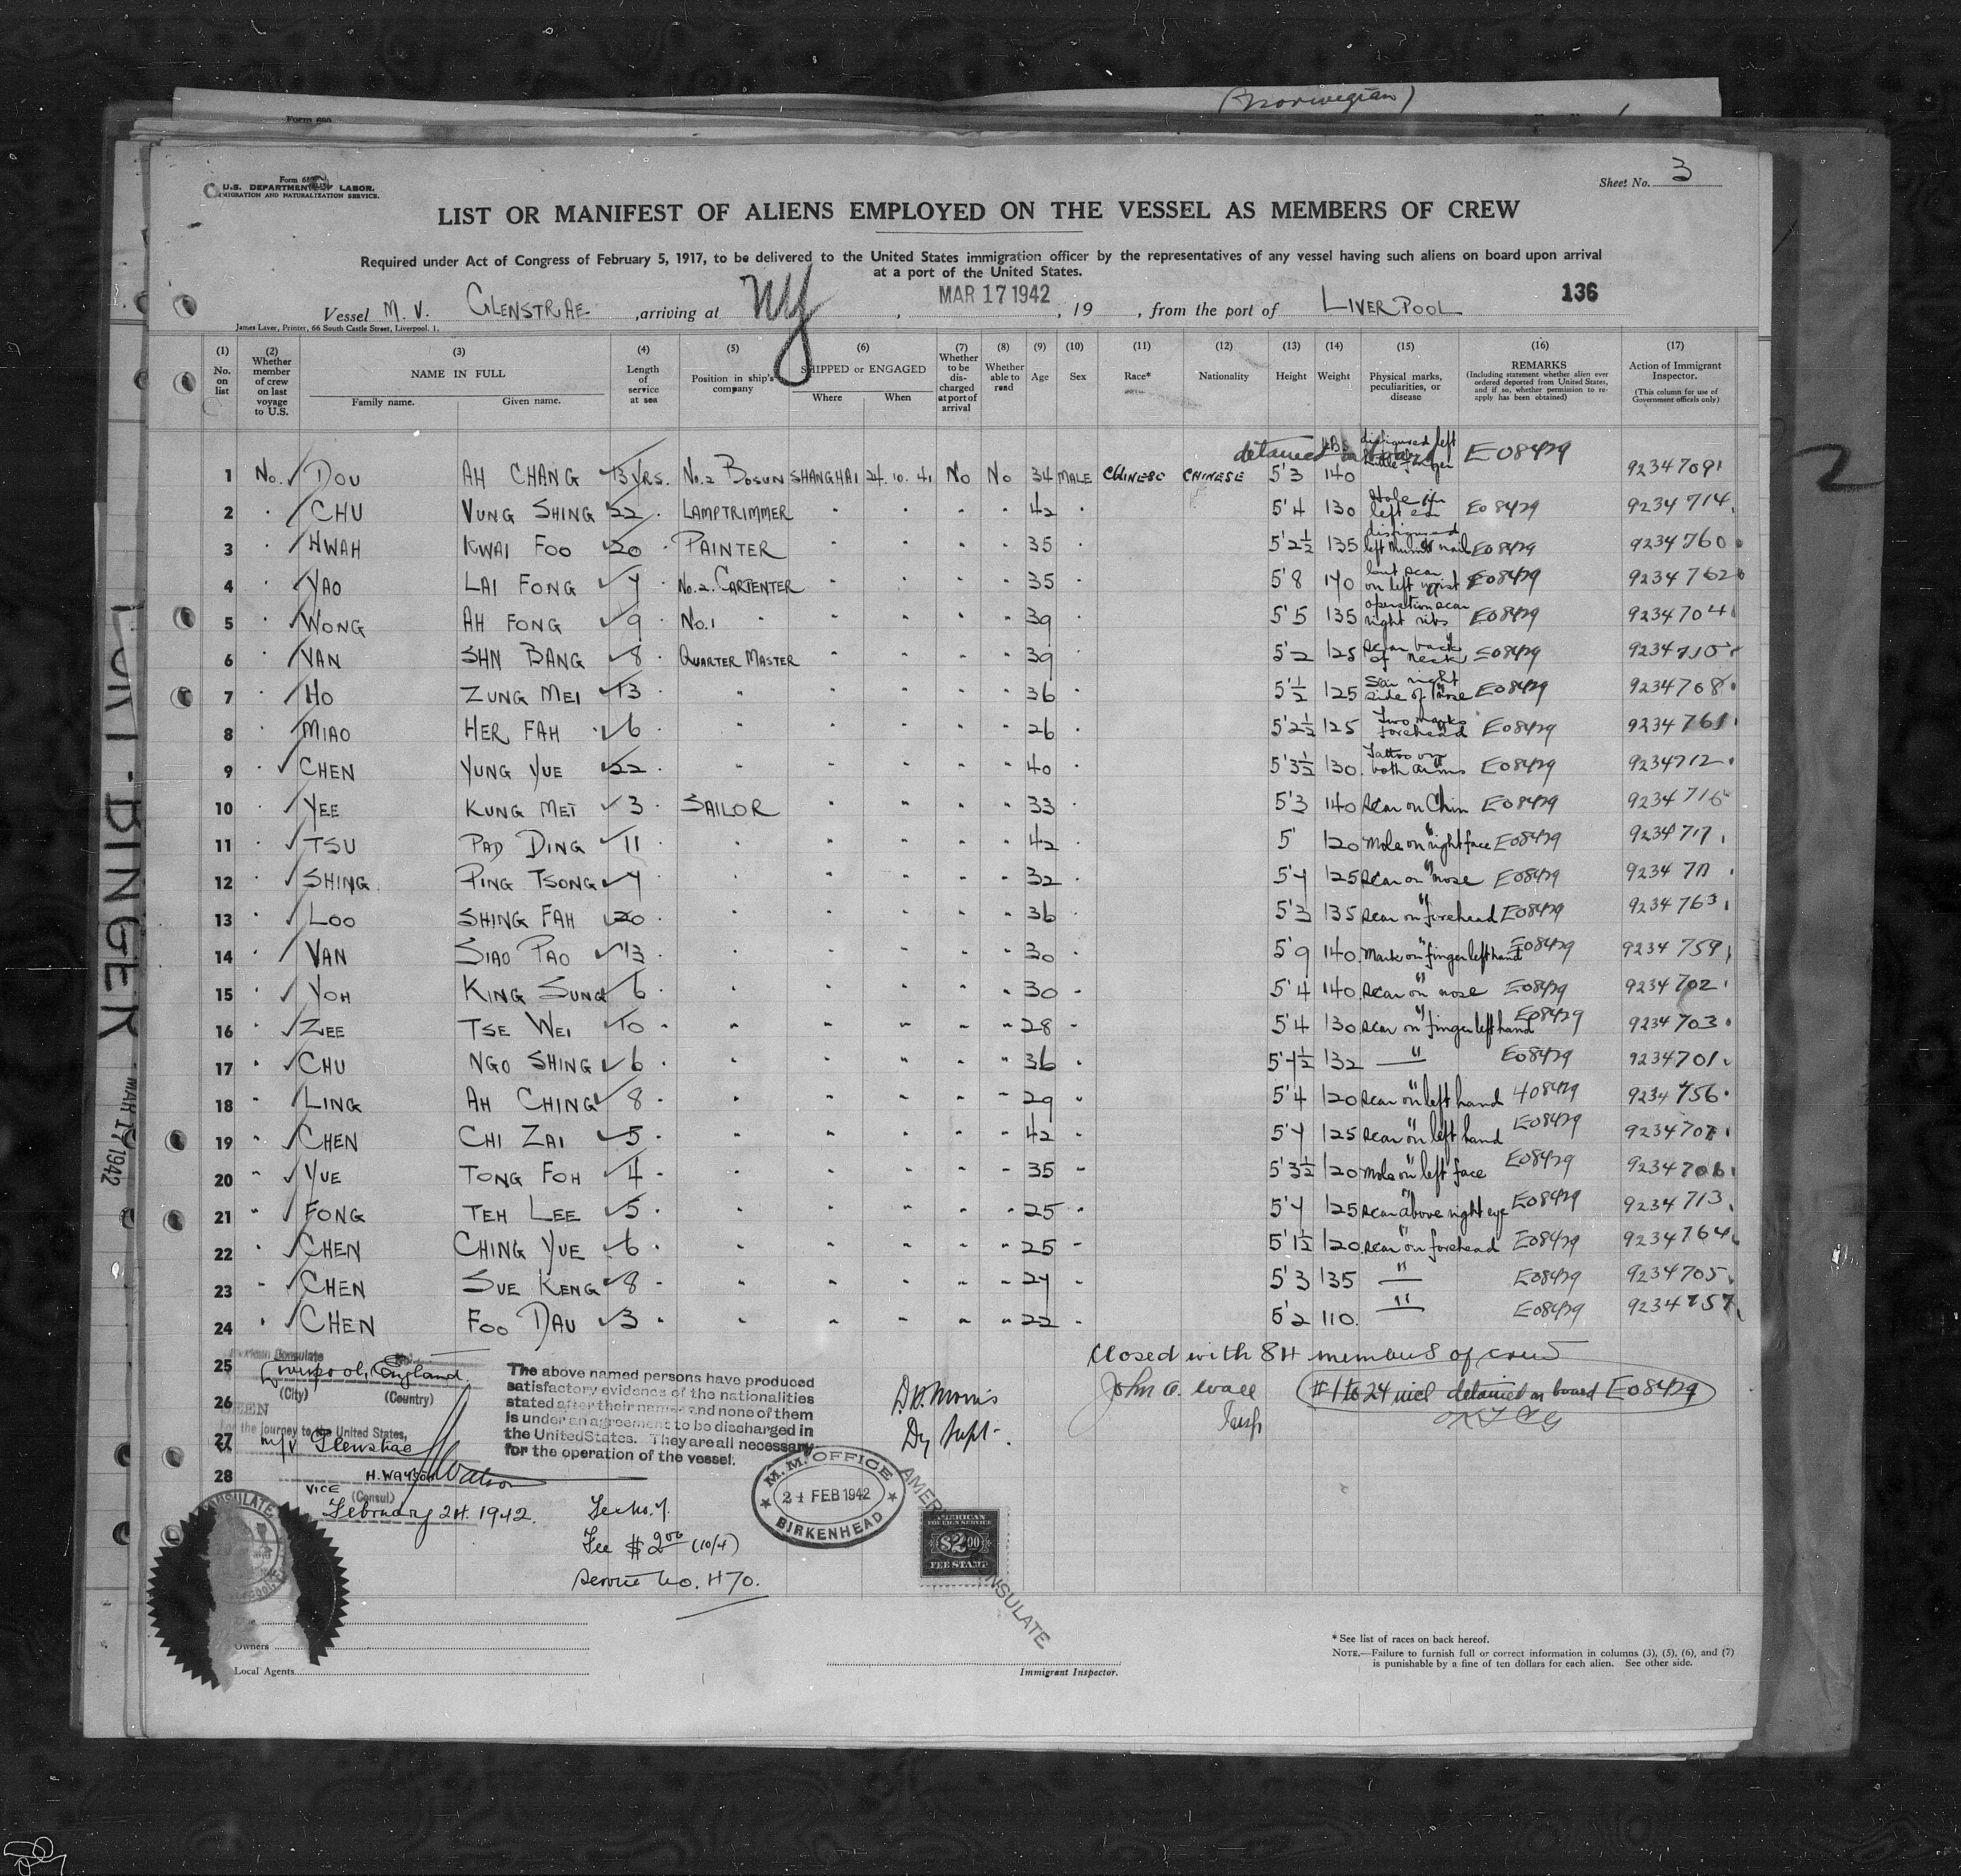 (Norwegian)
Form 680
Sheet No. 3
U.S. DEPARTMENT OF LABOR.
IMMIGRATION AND NATURALIZATION SERVICE.
LIST OR MANIFEST OF ALIENS EMPLOYED ON THE VESSEL AS MEMBERS OF CREW
Required under Act of Congress of February 5, 1917, to be delivered to the United States immigration officer by the representatives of any vessel having such aliens on board upon arrival
at a port of the United States.
Vessel M.V. GLENSTRAE, arriving at NY, MAR 17 1942, 19 , from the port of LIVERPOOL 136
James Laver, Printer, 66 South Castle Street, Liverpool. 1.
(1) No. on list (2) Whether member of crew on last voyage to U.S. (3) NAME IN FULL Family name. Given name. (4) Length of service at sea (5) Position in ship's company (6) SHIPPED or ENGAGED Where When (7) Whether to be discharged at port of arrival (8) Whether able to read (9) Age (10) Sex (11) Race* (12) Nationality (13) Height (14) Weight (15) Physical marks, peculiarities, or disease (16) REMARKS (Including statement whether alien ever ordered deported from United States, and if so, whether permission to reapply has been obtained) (17) Action of Immigrant Inspector. (This column for use of Government officials only)
detained on board
1 No. DOU AH CHANG 13 YRS. No.2 BOSUN SHANGHAI 24.10.41 No No 34 MALE CHINESE CHINESE 5'3 LBS 140 disfigured left little finger E08429 9234709
2 " CHU VUNG SHING 22 " LAMPTRIMMER " " " " 42 " 5'4 130 Hole in left ear E08429 9234714
3 " HWAH KWAI FOO 20 " PAINTER " " " " 35 " 5'2½ 135 disfigured left thumb nail E08429 9234760
4 " YAO LAI FONG 7 " No.2. CARPENTER " " " " 35 " 5'8 170 burnt scar on left wrist E08429 9234762
5 " WONG AH FONG 9 " No.1 " " " " " 39 " 5'5 135 operation scar right ribs E08429 9234704
6 " VAN SHN BANG 8 " QUARTER MASTER " " " " 39 " 5'2 125 scar back of neck E08429 9234710
7 " HO ZUNG MEI 13 " " " " " " 36 " 5'½ 125 Scar right side of nose E08429 9234708
8 " MIAO HER FAH 6 " " " " " " 26 " 5'2½ 125 Two marks forehead E08429 9234761
9 " CHEN YUNG YUE 22 " " " " " " 40 " 5'3½ 130 Tattoo on both arms E08429 9234712
10 " YEE KUNG MEI 3 " SAILOR " " " " 33 " 5'3 140 Scar on Chin E08429 9234716
11 " TSU PAD DING 11 " " " " " " 42 " 5' 120 Mole on right face E08429 9234717
12 " SHING PING TSONG 7 " " " " " " 32 " 5'7 125 Scar on nose E08429 9234711
13 " LOO SHING FAH 20 " " " " " " 36 " 5'3 135 Scar on forehead E08429 9234763
14 " VAN SIAO PAO 13 " " " " " " 30 " 5'9 140 Mark on finger left hand E08429 9234759
15 " YOH KING SUNG 6 " " " " " " 30 " 5'4 140 Scar on nose E08429 9234702
16 " ZEE TSE WEI 10 " " " " " " 28 " 5'4 130 Scar on finger left hand E08429 9234703
17 " CHU NGO SHING 6 " " " " " " 36 " 5'7½ 132 " E08429 9234701
18 " LING AH CHING 8 " " " " " " 29 " 5'4 120 Scar on left hand 408429 9234756
19 " CHEN CHI ZAI 5 " " " " " " 42 " 5'7 125 Scar on left hand E08429 9234707
20 " YUE TONG FOH 4 " " " " " " 35 " 5'3½ 120 Mole on left face E08429 9234706
21 " FONG TEH LEE 5 " " " " " " 25 " 5'7 125 Scar above right eye E08429 9234713
22 " CHEN CHING YUE 6 " " " " " " 25 " 5'1½ 120 Scar on forehead E08429 9234764
23 " CHEN SUE KENG 8 " " " " " " 27 " 5'3 135 " E08429 9234705
24 " CHEN FOO DAU 3 " " " " " " 22 " 5'2 110 " E08429 9234757
25
26
27
28
Closed with 84 members of crew
John A. Wall
Insp
#1 to 24 incl detained on board E08429
American Consulate
Liverpool, England.
(City) (Country)
SEEN
For the journey to the United States,
m/v Glenstrae
H. Watson
VICE (Consul)
February 24. 1942.
The above named persons have produced
satisfactory evidence of the nationalities
stated after their names and none of them
is under an agreement to be discharged in
the United States. They are all necessary
for the operation of the vessel.
D.D. Morris
Dy Supt.
Fee $2.00 (10/4)
Service No. 470.
M.M. OFFICE
24 FEB 1942
BIRKENHEAD
AMERICAN FOREIGN SERVICE
$2.00
FEE STAMP
AMERICAN CONSULATE
Owners
Local Agents
Immigrant Inspector.
* See list of races on back hereof.
NOTE.—Failure to furnish full or correct information in columns (3), (5), (6), and (7)
is punishable by a fine of ten dollars for each alien. See other side.
BINGER
MAR 17 1942
2